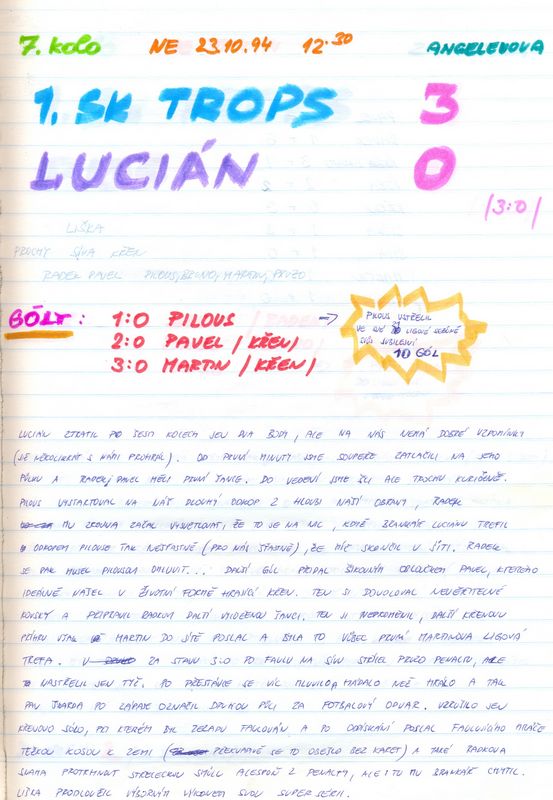 7. kolo NE 23.10.94 12.30 ANGELEVOVA
1. SK TROPS 3
LUCIÁN 0
/3:0/
LIŠKA
PROCHY SÍVA KŘEN
RADEK PAVEL PILOUS, BRUNO, MARTIN, PRUŽO
GÓLY: 1:0 PILOUS / RADEK /
2:0 PAVEL / KŘEN /
3:0 MARTIN / KŘEN /
PILOUS VSTŘELIL
VE SVÉ LIGOVÉ
SVŮJ JUBILEJNÍ
10 GÓL
LUCIÁN ZTRATIL PO ŠESTI KOLECH JEN DVA BODY, ALE NA NÁS NEMÁ DOBRÉ VZPOMÍNKY
(JIŽ NĚKOLIKRÁT S NÁMI PROHRÁL). OD PRVNÍ MINUTY JSME SOUPEŘE ZATLAČILI NA JEHO
PŮLKU A RADEK, PAVEL MĚLI PRVNÍ ŠANCE. DO VEDENÍ JSME ŠLI ALE TROCHU KURIÓZNĚ.
PILOUS VYSTARTOVAL NA NÁŠ DLOUHÝ ODKOP Z HLOUBI NAŠÍ OBRANY, RADEK
MU ZROVNA ZAČAL VYSVĚTLOVAT, ŽE TO JE NA NIC, KDYŽ BRANKÁŘ LUCIÁNU TREFIL
ODKOPEM PILOUSE TAK NEŠŤASTNĚ (PRO NÁS ŠŤASTNĚ), ŽE MÍČ SKONČIL V SÍTI. RADEK
SE PAK MUSEL PILOUSOVI OMLUVIT... DALŠÍ GÓL PŘIDAL ŠIKOVNÝM OBLOUČKEM PAVEL, KTERÉHO
IDEÁLNĚ NAŠEL V ŽIVOTNÍ FORMĚ HRAJÍCÍ KŘEN. TEN SI DOVOLOVAL NEUVĚŘITELNÉ
KOUSKY A PŘIPRAVIL RADKOVI DALŠÍ VYLOŽENOU ŠANCI. TEN JI NEPROMĚNIL, DALŠÍ KŘENOVU
PŘIHRU VŠAK MARTIN DO SÍTĚ POSLAL A BYLA TO VŮBEC PRVNÍ MARTINOVA LIGOVÁ
TREFA. V ZA STAVU 3:0 PO FAULU NA SÍVU STŘÍLEL PRUŽO PENALTU, ALE
NASTŘELIL JEN TYČ. PO PŘESTÁVCE SE VÍC MLUVILO A HÁDALO NEŽ HRÁLO A TAK
PAN TVARDA PO ZÁPASE OZNAČIL DRUHOU PŮLI ZA FOTBALOVÝ ODVAR. VZRUŠILO JEN
KŘENOVO SÓLO, PŘI KTERÉM BYL ZEZADU FAULOVÁN A PO ODPÍSKÁNÍ POSLAL FAULUJÍCÍHO HRÁČE
TĚŽKOU KOSOU K ZEMI (PŘEKVAPIVĚ SE TO OBEŠLO BEZ KARET) A TAKÉ RADKOVA
SNAHA PROTRHNOUT STŘELECKOU SMŮLU ALESPOŇ Z PENALTY, ALE I TU MU BRANKÁŘ CHYTIL.
LIŠKA PRODLOUŽIL VÝBORNÝM VÝKONEM SVOU SUPER SÉRII.